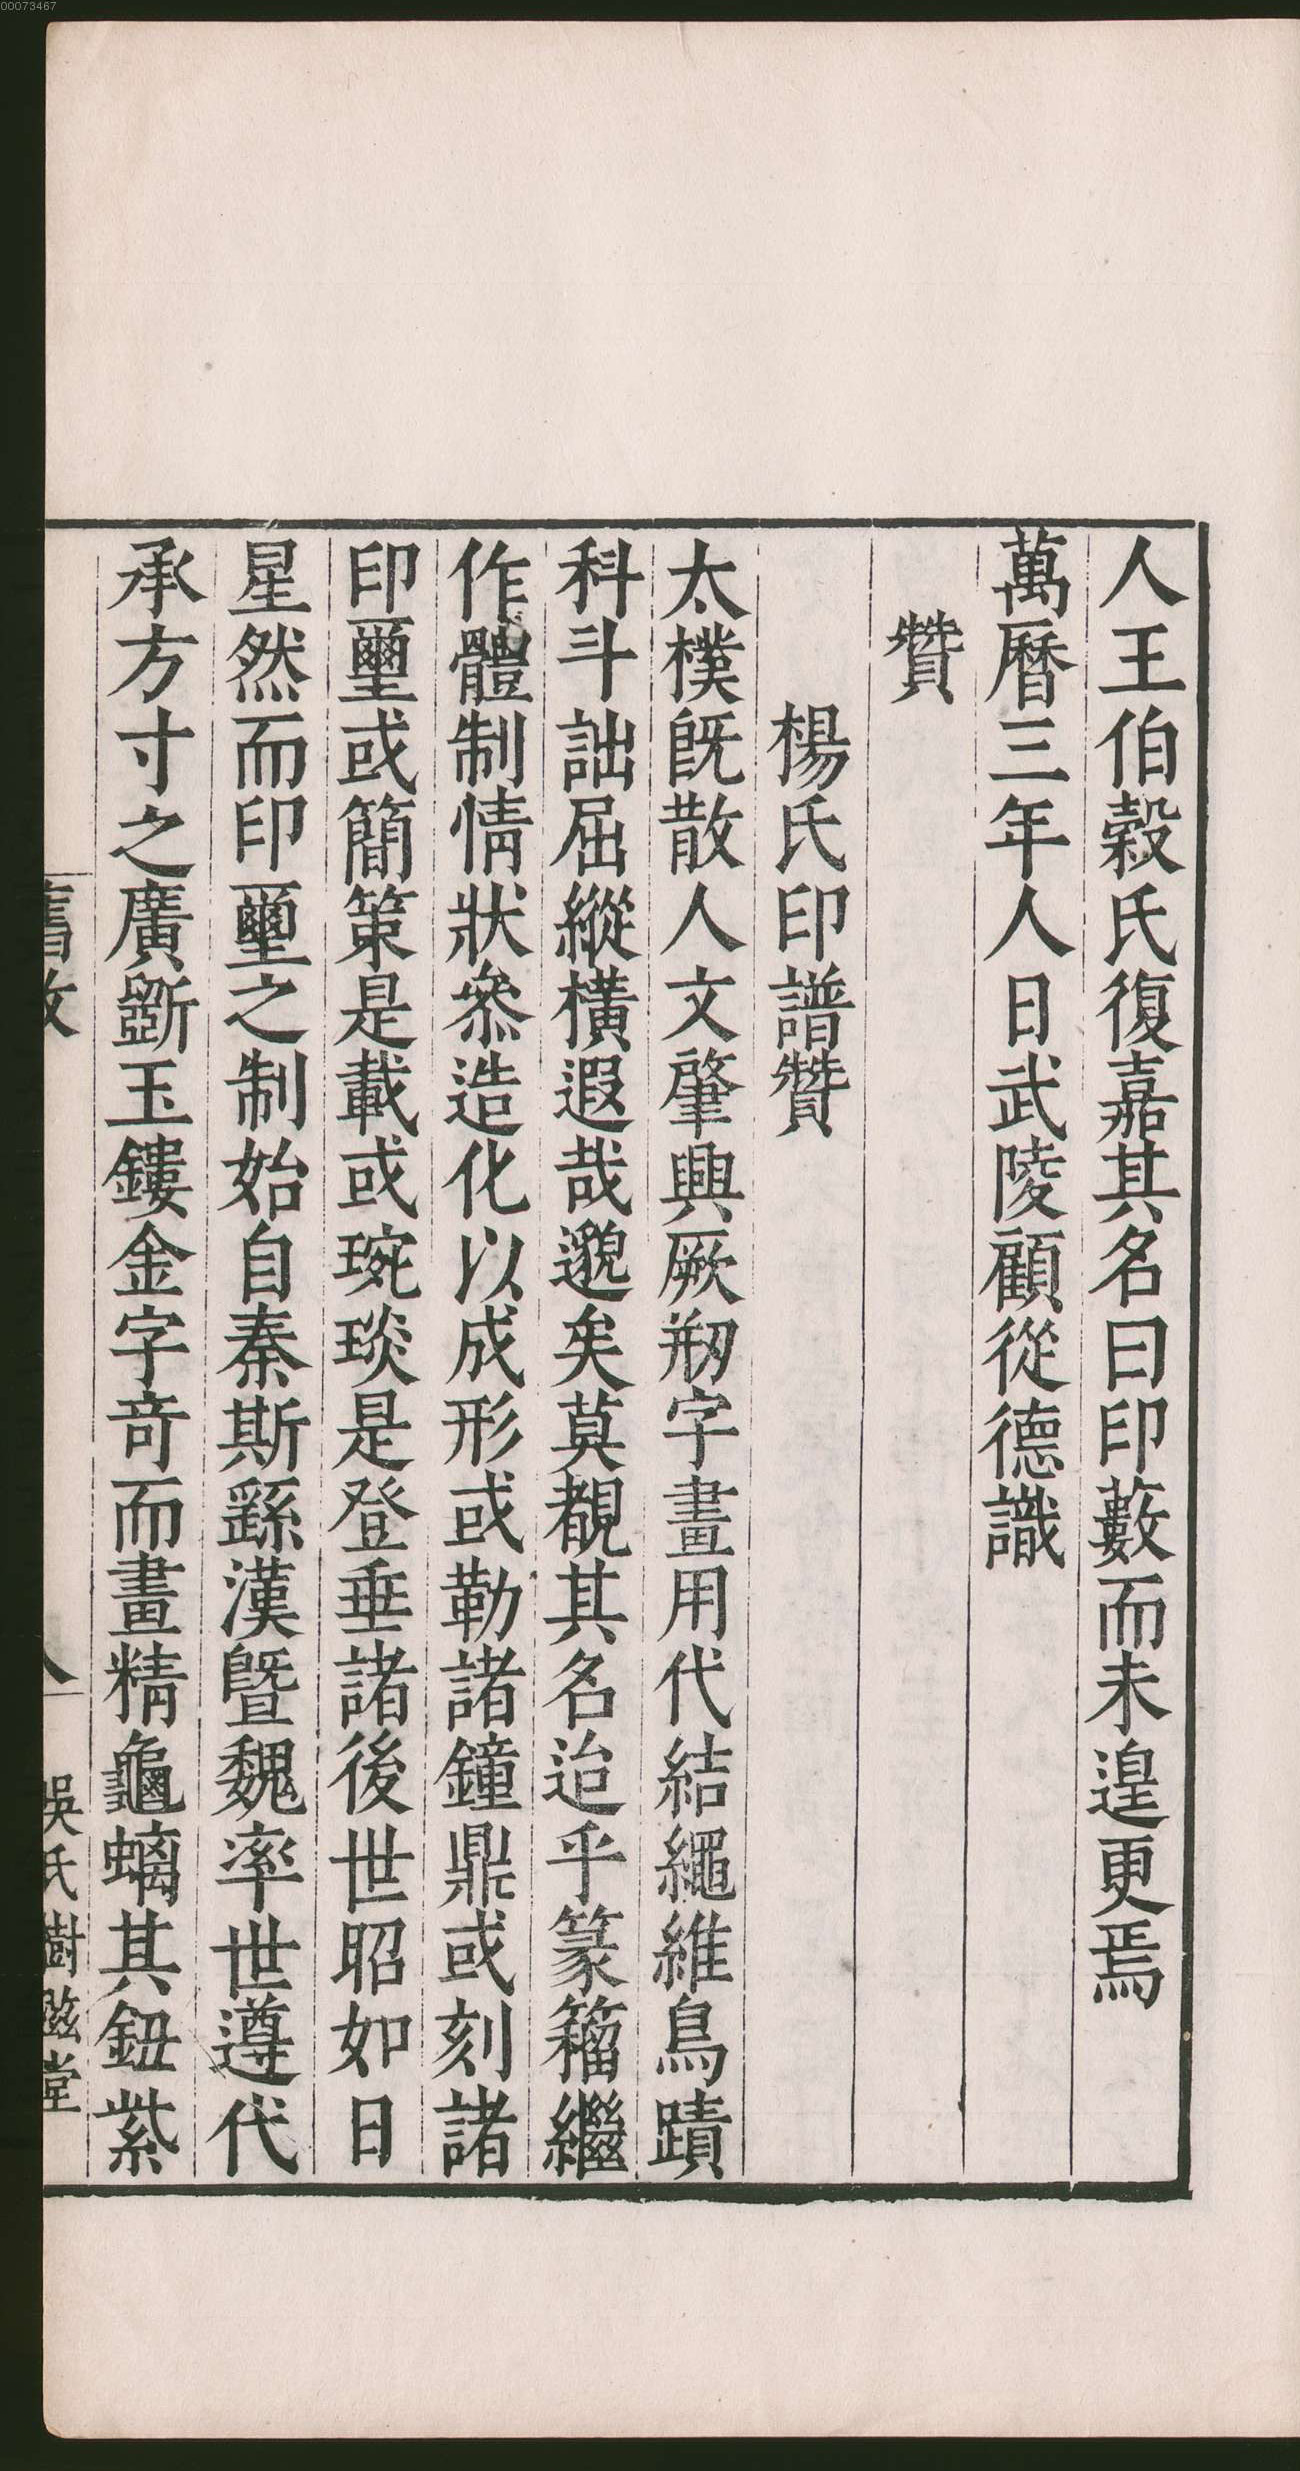 00073467
人王伯榖氏復嘉其名曰印藪而未遑更焉
萬曆三年人日武陵顧從德識
贊
楊氏印譜贊
太樸旣散人文肇興厥剏字畫用代結繩維鳥蹟
科斗詘屈縱橫遐哉邈矣莫覩其名迨乎篆籀繼
作體制情狀叅造化以成形或勒諸鐘鼎或刻諸
印璽或簡策是載或琬琰是登垂諸後世昭如日
星然而印璽之制始自秦斯繇漢曁魏率世遵代
承方寸之廣斲玉鏤金字竒而畫精龜螭其鈕紫
吳氏樹滋堂